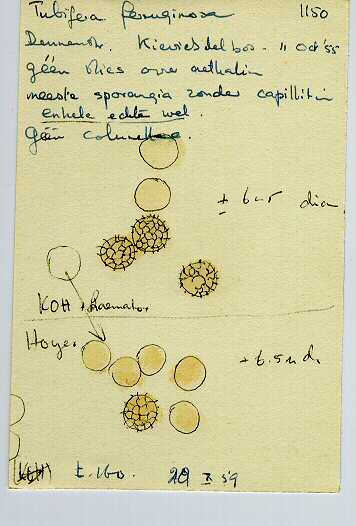 Tubifera ferruginosa 1150
Dennenstr. Kievietsdel bos - 11 Oct '55
géén vlies over aethalia
meeste sporangia zonder capillitia
enkele echte wel.
Géén columellae.
± 6-5 diam
KOH + haemato
Hoyer
± 6.5 μ d.
KOH 29 X 59